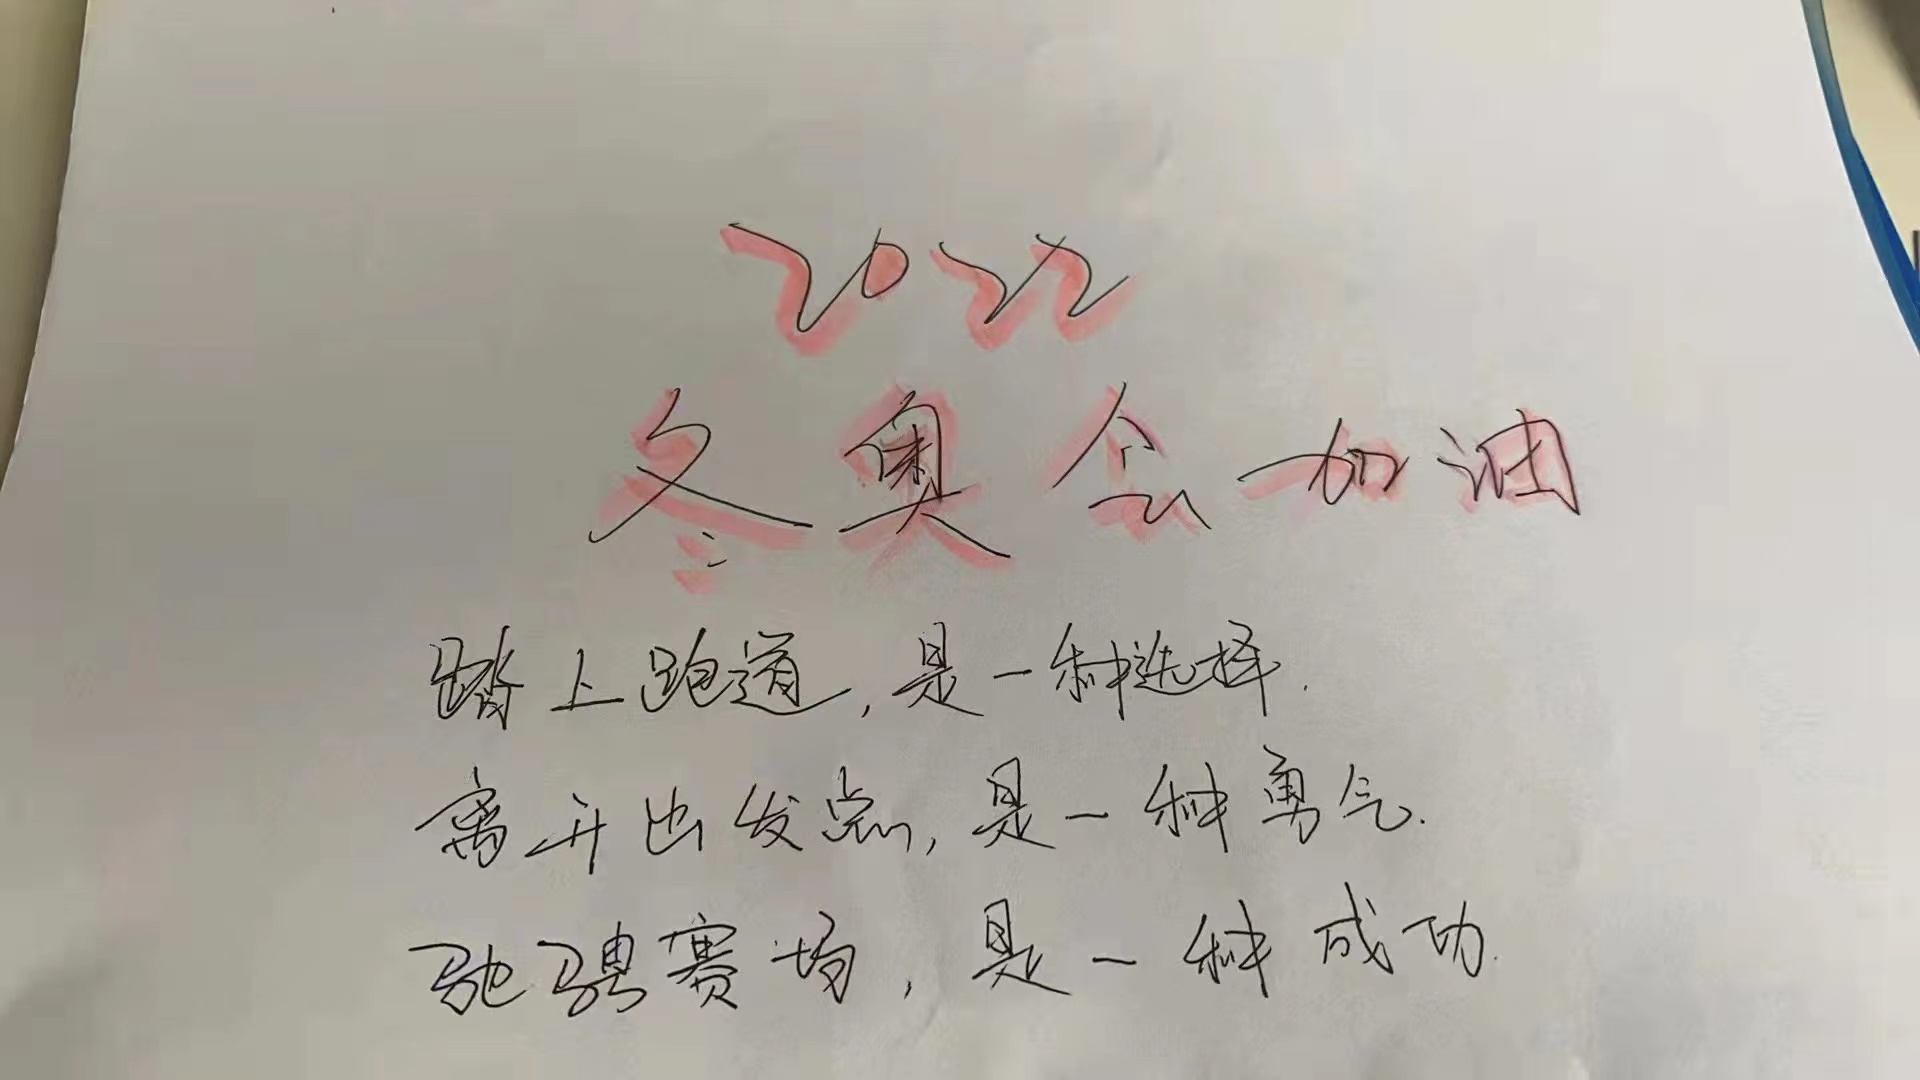 2022
冬奥会加油
踏上跑道,是一种选择.
离开出发点,是一种勇气.
驰骋赛场,是一种成功.